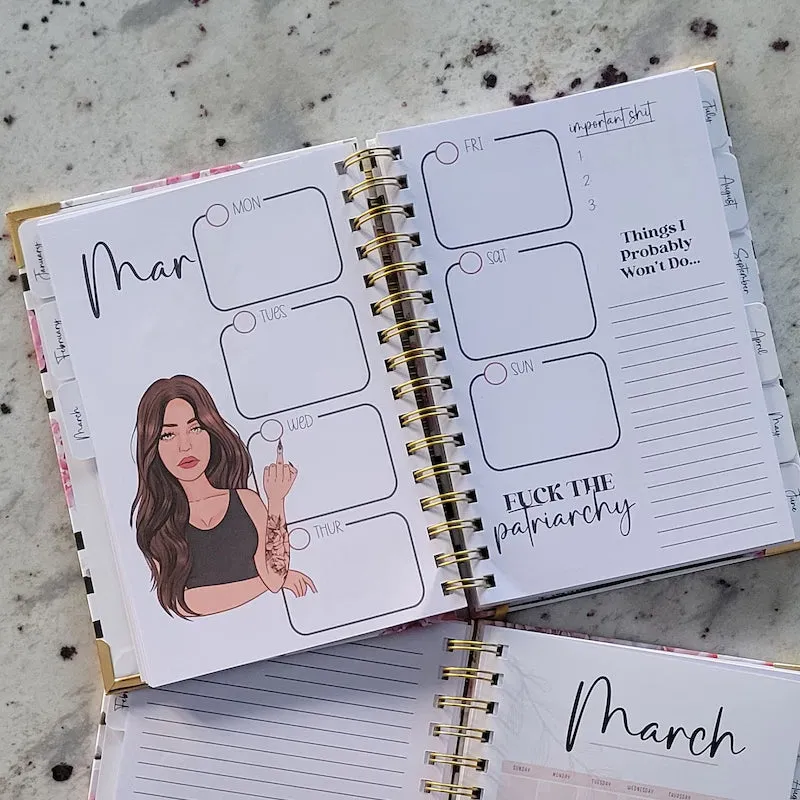 January
February
March
Mar
MON
TUES
WED
THUR
FRI
SAT
SUN
FUCK THE
patriarchy
important shit
1
2
3
Things I
Probably
Won't Do...
July
August
September
April
May
June
March
SUNDAY
MONDAY
TUESDAY
WEDNESDAY
THURSDAY